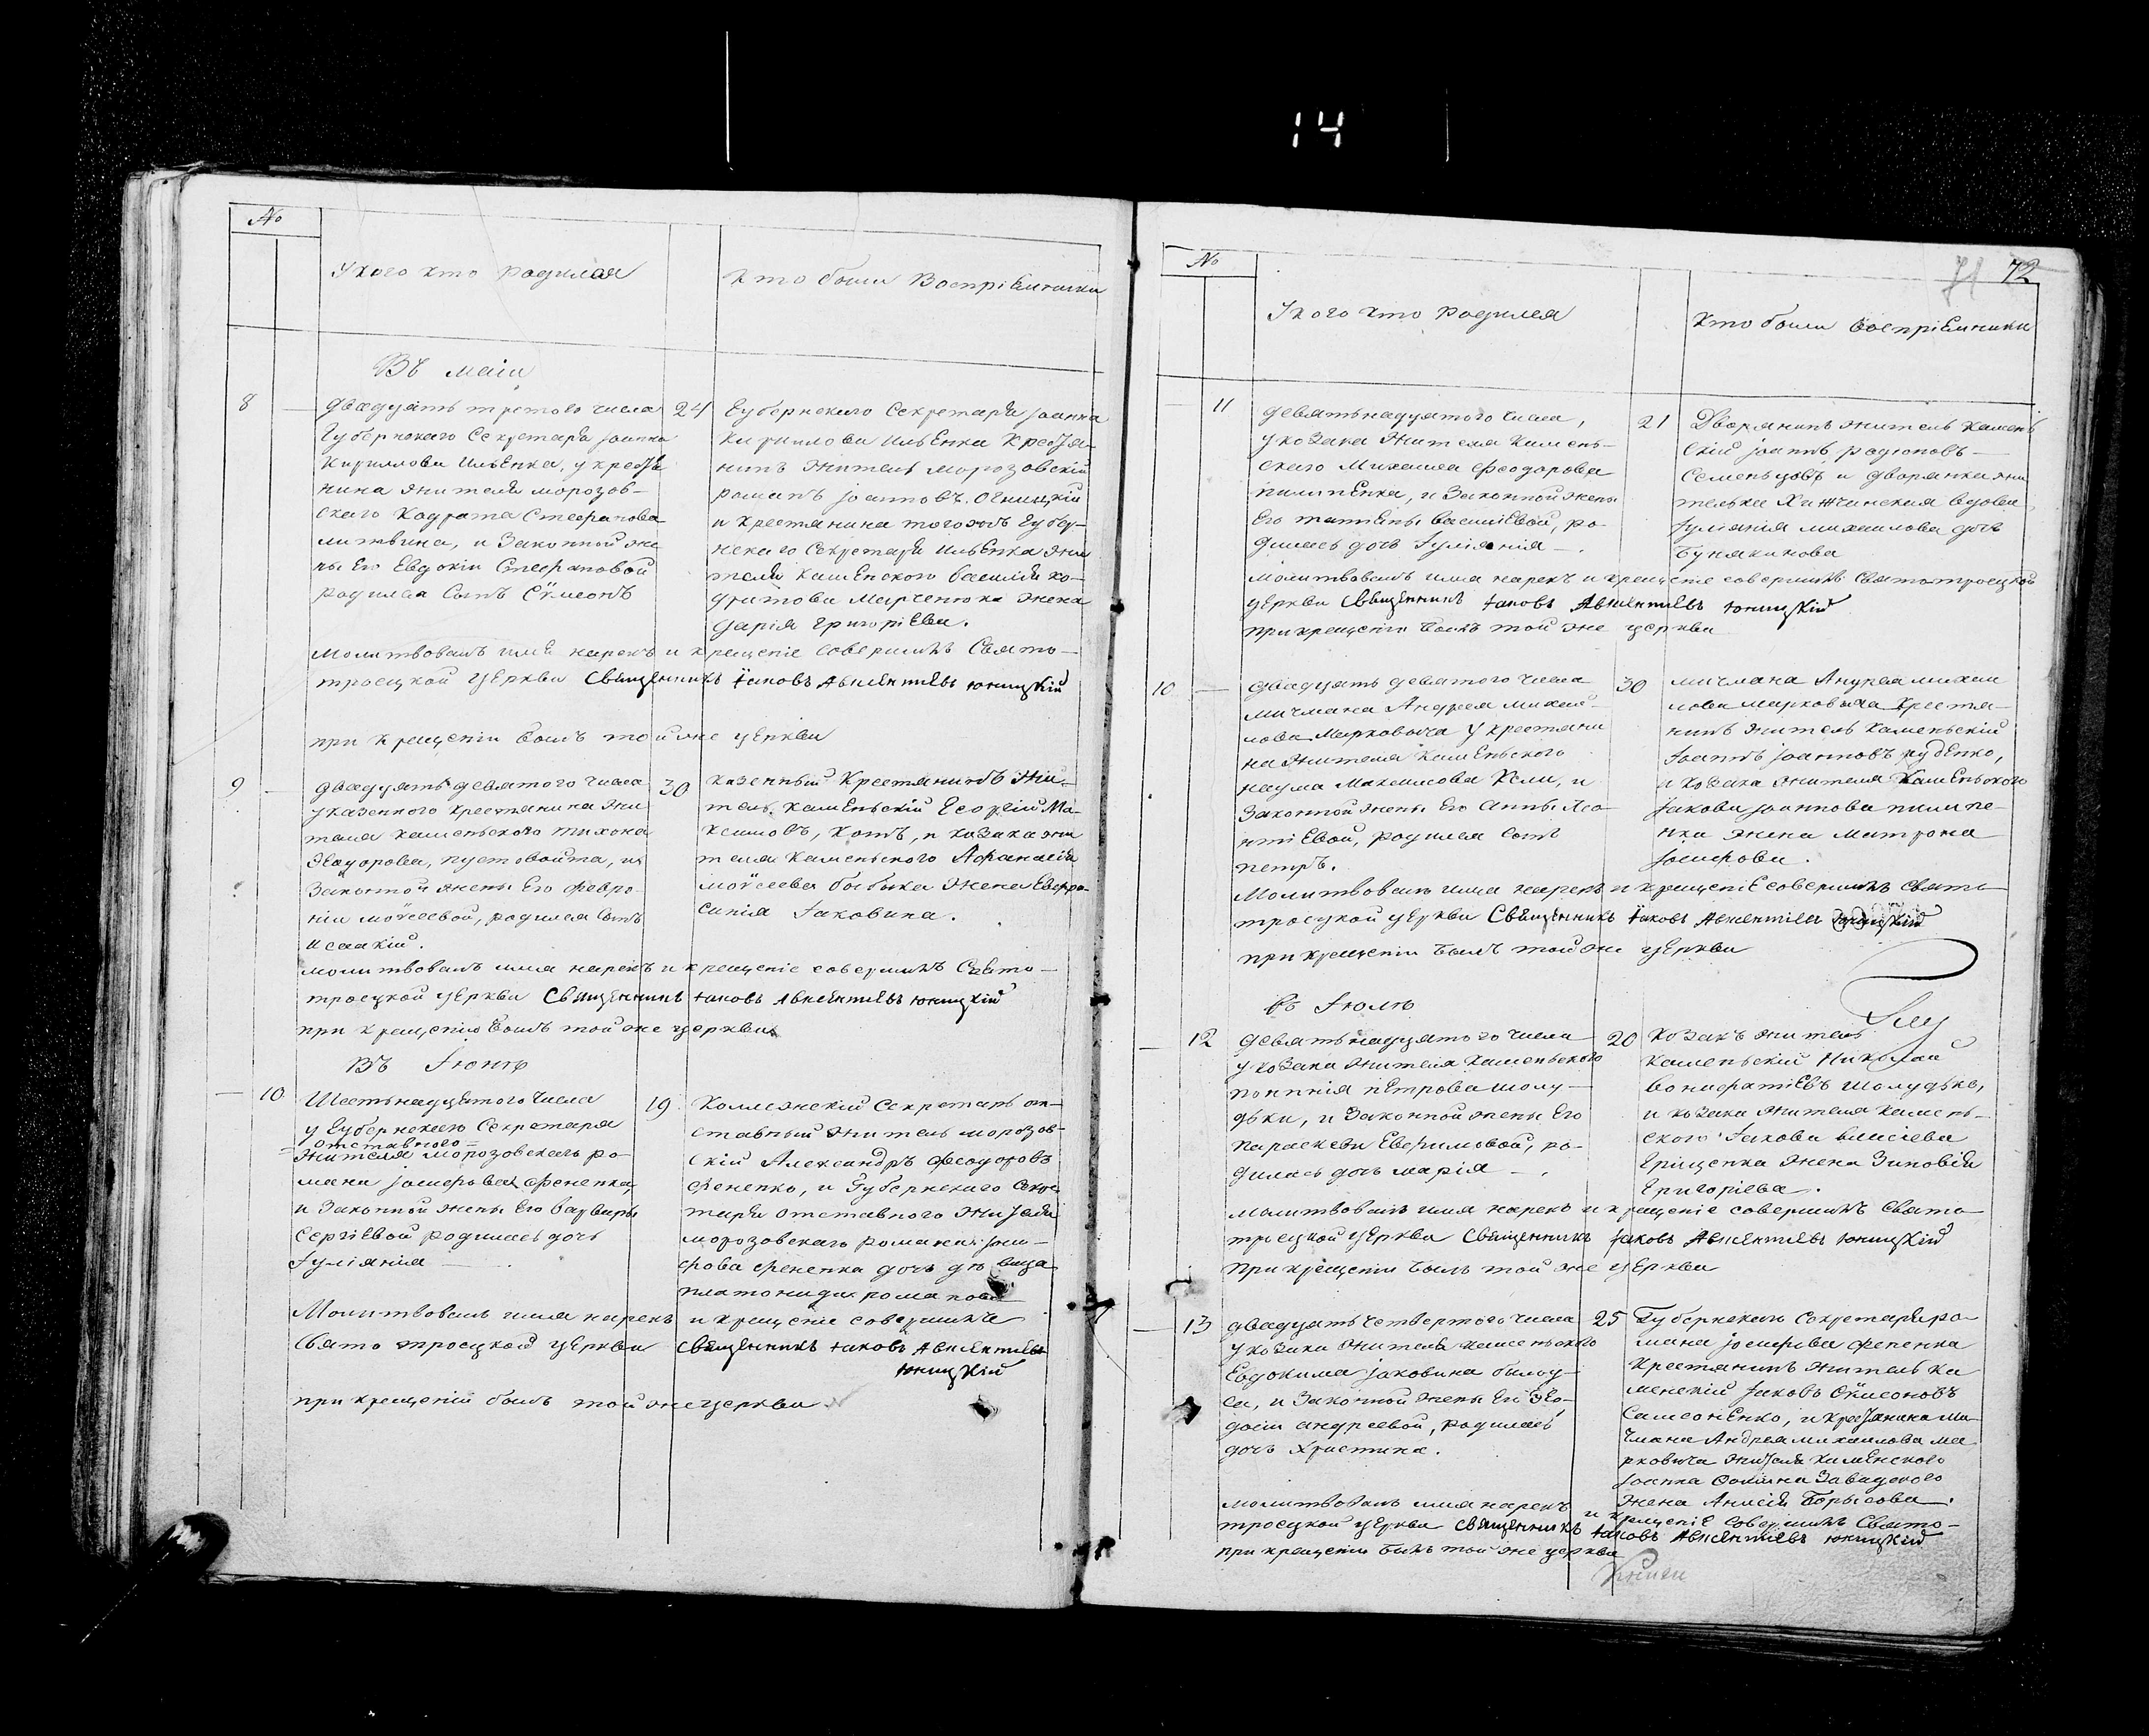 14
№
У кого кто родился
кто были Воспріемники
Въ маіи
8
двадцять третого числа
Губернскаго Секретаря Іоанна
Кирилова Ильенка, у крестя-
нина жителя морозов-
скаго Кодрата Стефанова
литвина, и Законной же
ны Его Евдокіи Стефановой
родился Сынъ Сѵмеонъ
24
Губернскаго Секретаря Іоанна
Кирилова Ильенка Крестя-
нинъ житель морозовскій
романъ Іоанновъ
и крестянина тогожъ Губер-
нскаго Секретаря Ильенка жи
теля Каменского Василія Ко-
дратова Марченка жена
Дарія Григоріева.
молитвовалъ имя нарекъ и крещеніе совершилъ Свято-
троецкой церкви Священникъ Іаковъ Авксентіевъ Юницкій
при крещеніи былъ той же церкви
9
двадцять девятого числа
у казенного крестянина жи
теля каменьского тихона
Ѳеодорова, пустовойта, и
Законной жены Его февро
ніи моѵсеевой, родился Сынъ
Исаакій.
30
казенный Крестянинъ жи-
тель каменьскій Георгій Ма-
ксимовъ, Котъ, и козака жи
теля Каменьского Афанасія
моѵсеева бибика жена Евфро-
синія Іаковина.
молитвовалъ имя нарекъ и крещеніе совершилъ Свято-
троецкой церкви Священникъ Іаковъ Авксентіевъ Юницкій
при крещеніи былъ той же церкви
Въ Іюнѣ
10
Шестьнадцятого числа
у Губернскаго Секретаря
= отставного =
жителя морозовскаго ро-
мана Іосифова Фененка,
и Законной жены Его варвары
Сергіевой родилась дочь
Іуліянія
19
Коллежскій Секретарь от-
ставный житель морозов-
скій Александръ Феодоровъ
Фененко, и Губернскаго Секре
таря отставного жителя
морозовскаго романа Іоси-
фова Фененка дочь дѣвица
платонида романова
Молитвовалъ имя нарекъ и крещеніе совершилъ
Свято троецкой церкви Священникъ Іаковъ Авксентіевъ
Юницкій
при крещеніи былъ той же церкви
№
72
У кого кто родился
Кто были воспріемники
11
девятьнадцятого числа,
у козака жителя камень-
ского Михаила Феодорова
пилипенка, и Законной жены
Его татіяны василіевой, ро-
дилась дочь Іуліянія
21
Дворянинъ житель камень
скій Іоаннъ родіоновъ-
Семенцовъ и дворянка жи
телька вдова
Іуліанія михаилова дочь
Бунякинова
молитвовалъ имя нарекъ и крещеніе совершилъ Святотроецкой
церкви Священникъ Іаковъ Авксентіевъ Юницкій
при крещеніи былъ той же церкви
10
двадцять девятого числа
мичмана Андрея михаи-
лова Марковича у крестяни
на жителя Каменьского
наума Михаилова и
Законной жены Его Анны Лео
нтіевой, родился Сынъ
петръ.
30
мичмана Андрея михаи
лова марковича Крестя-
нинъ житель Каменьскій
Іоаннъ Іоанновъ руденко,
и козака жителя Каменьского
Іакова Іоаннова пилипе-
нка жена матрона
Іосифова.
Молитвовалъ имя нарекъ и крещеніе совершилъ свято
троецкой церкви Священникъ Іаковъ Авксентіевъ Юницкій
при крещеніи былъ той же церкви
въ Іюлѣ
12
девятьнадцятого числа
у козака жителя каменьского
петрова шолу-
дька, и Законной жены Его
параскеви Евфимовой, ро-
дилась дочь марія
20
Козакъ житель
каменьскій Николай
вонифатіевъ шолудько,
и козака жителя камень-
ского Іакова
Грищенка жена Зиновія
Григоріева.
молитвовалъ имя нарекъ и крещеніе совершилъ Свято
троецкой церкви Священникъ Іаковъ Авксентіевъ Юницкій
при крещеніи былъ той же церкви
13
двадцять четвертого числа
у козака жителя каменьского
Евдокима Іаковина
и Законной жены Его Ѳео-
досіи андреевой, родилась
дочь Христина.
25
Губернскаго Секретаря ро-
мана Іосифова фененка
крестянинъ житель ка
менскій Іаковъ Сѵмеоновъ
Самсоненко, и крестянина ми
чмана Андрея михаилова ма
рковича жителя каменского
Іоанна Завадского
жена Анисія Борысова.
молитвовалъ имя нарекъ и крещеніе совершилъ Свято-
троецкой церкви Священникъ Іаковъ Авксентіевъ Юницкій
при крещеніи былъ той же церкви